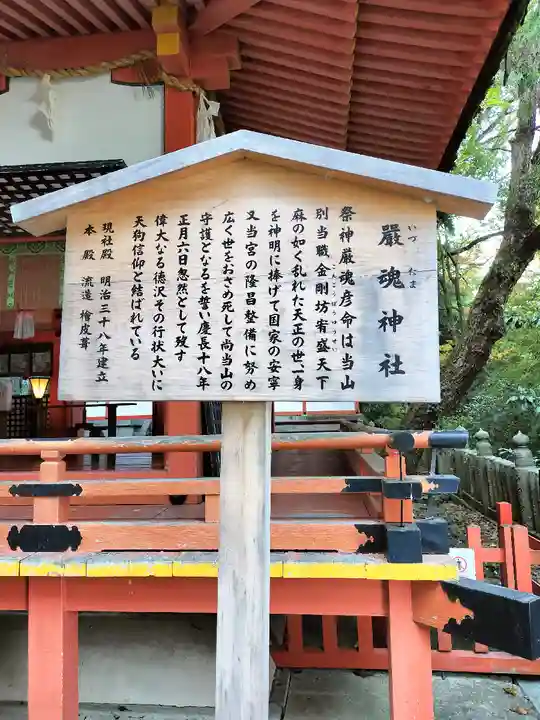 嚴魂神社
いづたま
祭神嚴魂彦命は当山
別当職金剛坊宥盛天下
こんごうぼうゆうせい
麻の如く乱れた天正の世一身
を神明に捧げて国家の安寧
又当宮の隆昌整備に努め
広く世をおさめ死して尚当山の
守護となるを誓い慶長十八年
正月六日忽然として歿す
偉大なる徳沢その行状大いに
天狗信仰と結ばれている
現社殿 明治三十八年建立
本殿 流造 檜皮葺